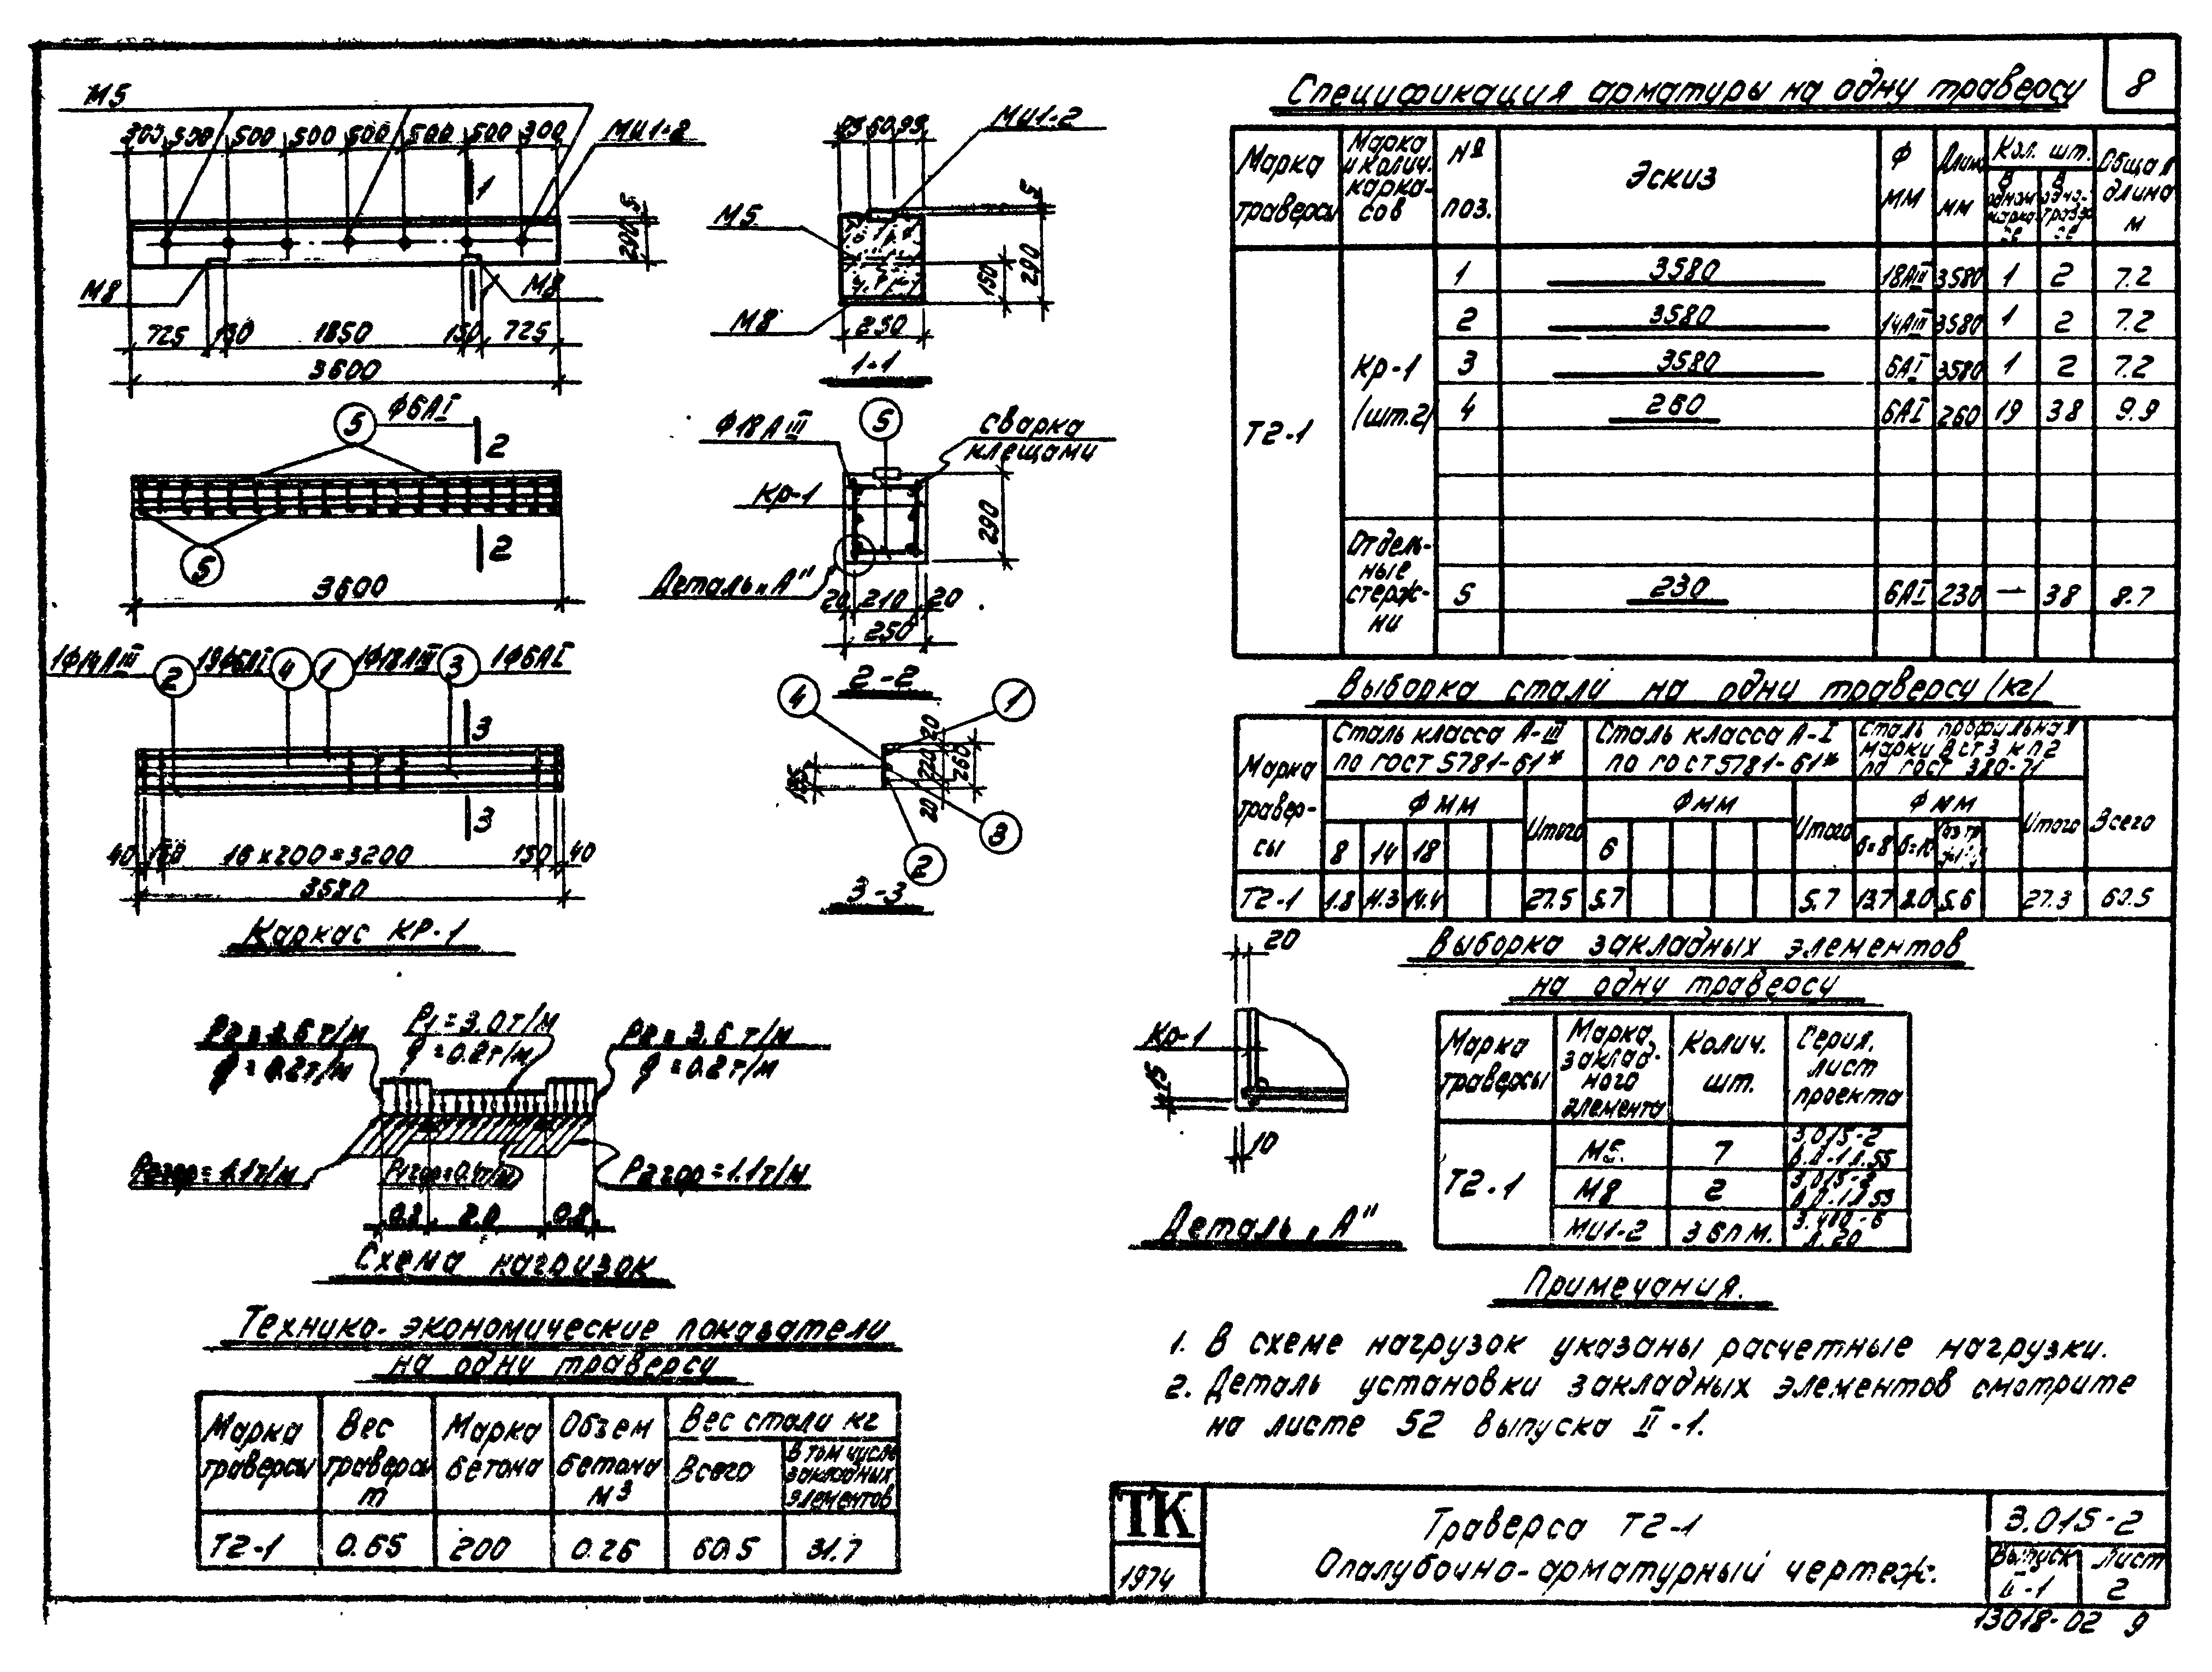 8
М5
300 500 500 500 500 500 500 300
МИ1-2
1
5
290
М8
М8
725 150 1850 150 725
3600
95 60 95
МИ1-2
М5
5
150
290
М8
250
1-1
5
ф6АI
2
5
2
3600
ф18АIII
5
сварка
клещами
Кр-1
290
Деталь „А"
20 210 20
250
2-2
1ф14АIII
2
19ф6АI
4
1
1ф18АIII
3
1ф6АI
3
3
40 150 16×200=3200 150 40
3580
Каркас КР-1
4
1
20
220
260
20
3
2
3-3
P2=3.6т/м
q=0.2т/м
P1=3.0т/м
q=0.2т/м
P2=3.6т/м
q=0.2т/м
P2гор=1.1т/м
P2гор=1.1т/м
0.8 2.0 0.8
Схема нагрузок
Технико-экономические показатели
на одну траверсу
Марка траверсы
Вес траверсы т
Марка бетона
Объем бетона м3
Вес стали кг
Всего
В том числе закладных элементов
Т2-1 0.65 200 0.26 60.5 31.7
Спецификация арматуры на одну траверсу
Марка траверсы
Марка и колич. каркасов
№ поз.
Эскиз
Ф мм
Длина мм
Кол. шт.
В одном каркасе
В одной траверсе
Общая длина м
Т2-1
Кр-1
(шт.2)
1 3580 18АIII 3580 1 2 7.2
2 3580 14АIII 3580 1 2 7.2
3 3580 6АI 3580 1 2 7.2
4 260 6АI 260 19 38 9.9
Отдель-
ные
стерж-
ни
5 230 6АI 230 — 38 8.7
Выборка стали на одну траверсу (кг)
Марка
травер-
сы
Сталь класса А-III
по ГОСТ 5781-61*
Сталь класса А-I
по ГОСТ 5781-61*
Сталь профильная
марки ВСт3кп2
по ГОСТ 380-71
Всего
Ф мм
Итого
Ф мм
Итого
Ф мм
Итого
8 14 18
6
Т2-1 1.8 11.3 14.4 27.5 5.7 5.7 13.7 8.0 5.6 27.3 60.5
20
Кр-1
15
10
Деталь „А"
Выборка закладных элементов
на одну траверсу
Марка траверсы
Марка
заклад-
ного
элемента
Колич.
шт.
Серия,
лист
проекта
Т2-1
М5. 7 3.015-2
в.II-1 л.55
М8 2 3.015-2
в.II-1 л.55
МИ1-2 3.6п.м. 3.400-6
л.20
Примечания.
1. В схеме нагрузок указаны расчетные нагрузки.
2. Деталь установки закладных элементов смотрите
на листе 52 выпуска II-1.
ТК
1974
Траверса Т2-1
Опалубочно-арматурный чертеж.
3.015-2
Выпуск
II-1
Лист
2
13018-02 9